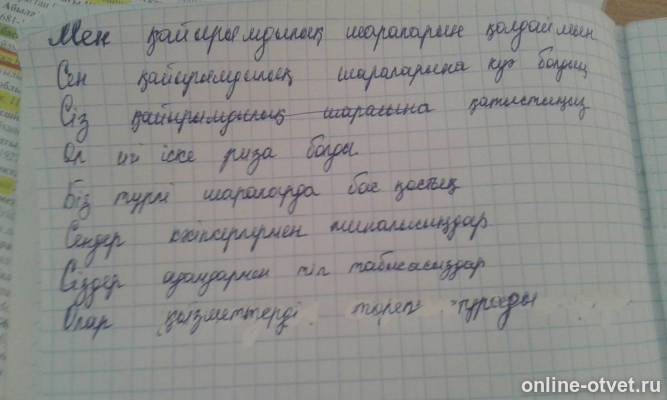 Мен қайырымдылық шараларын қолдаймын
Сен қайырымдылық шараларына куә болдың
Сіз қайырымдылық шарасына қатыстыңыз
Ол игі іске риза болды
Біз түрлі шараларда бас қостық
Сендер кәсіпкерлермен жиналысыңдар
Сіздер адамдармен тіл табысасыздар
Олар қызметтерді төлеп тұрады
online-otvet.ru